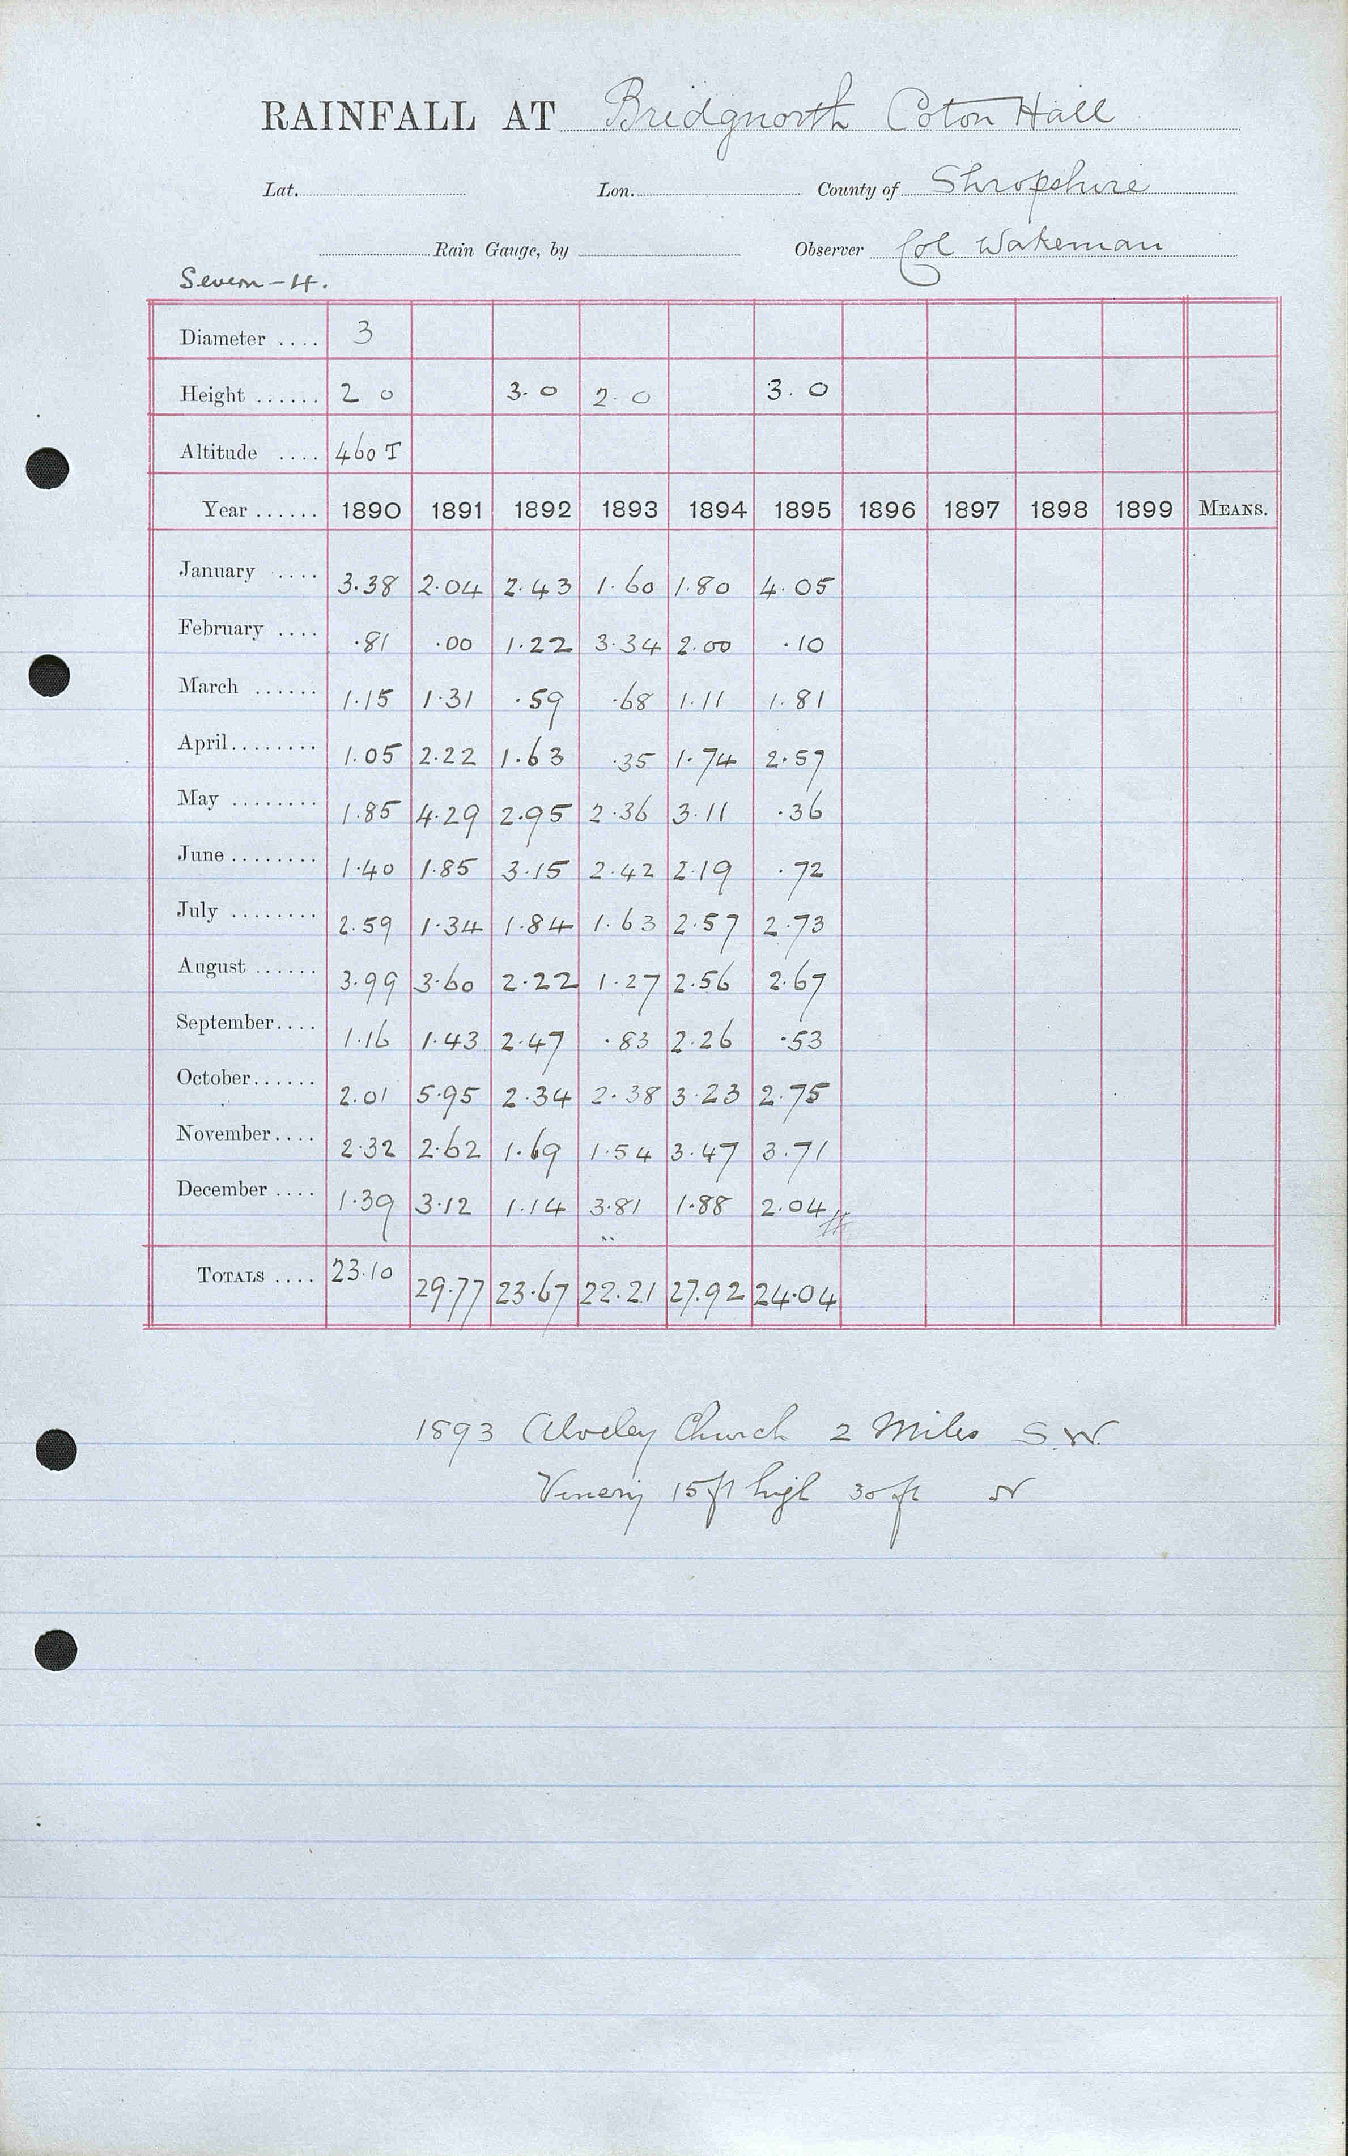 RAINFALL AT Bridgnorth Coton Hall
Lat. Lon. County of Shropshire
Rain Gauge, by Observer Col Wakeman
Severn - 4.
Diameter .... 3
Height ...... 2 0 3. 0 2. 0 3. 0
Altitude .... 460 T
Year ...... 1890 1891 1892 1893 1894 1895 1896 1897 1898 1899 MEANS.
January .... 3.38 2.04 2.43 1.60 1.80 4.05
February .... .81 .00 1.22 3.34 2.00 .10
March ...... 1.15 1.31 .59 .68 1.11 1.81
April........ 1.05 2.22 1.63 .35 1.74 2.57
May ........ 1.85 4.29 2.95 2.36 3.11 .36
June ........ 1.40 1.85 3.15 2.42 2.19 .72
July ........ 2.59 1.34 1.84 1.63 2.57 2.73
August ...... 3.99 3.60 2.22 1.27 2.56 2.67
September.... 1.16 1.43 2.47 .83 2.26 .53
October...... 2.01 5.95 2.34 2.38 3.23 2.75
November.... 2.32 2.62 1.69 1.54 3.47 3.71
December .... 1.39 3.12 1.14 3.81 1.88 2.04
TOTALS .... 23.10 29.77 23.67 22.21 27.92 24.04
1893 Alveley Church 2 Miles S.W.
Vinery 15 ft high 30 ft N